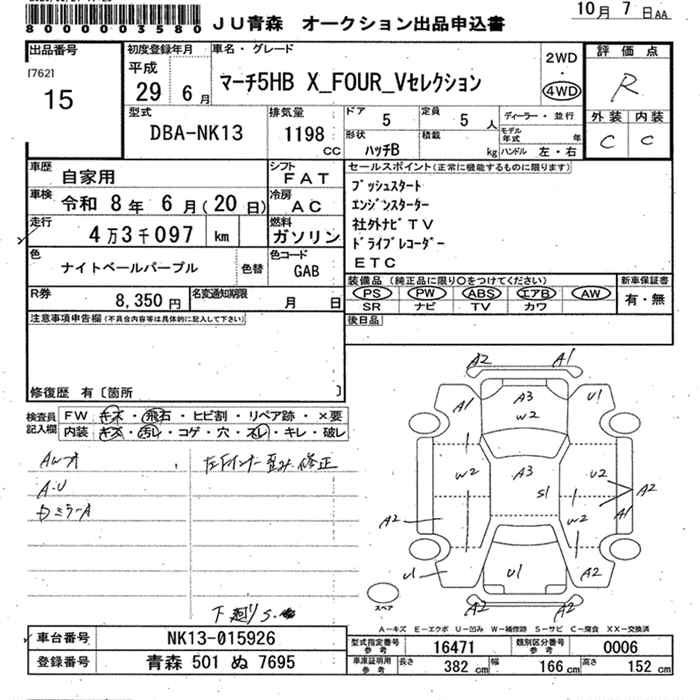 8000003580 JU青森 オークション出品申込書
10月 7日AA
出品番号
[762]
15
初度登録年月
平成
29 6月
車名・グレード
マーチ5HB X_FOUR_Vセレクション
2WD
・
4WD
評価点
R
外装 内装
C C
型式
DBA-NK13
排気量
1198
CC
ドア
5
定員
5人
形状
ハッチB
積載
kg
ディーラー・並行
モデル年式 年
ハンドル 左・右
車歴
自家用
シフト
FAT
車検
令和 8年 6月(20日)
冷房
AC
走行
4万3千097 km
燃料
ガソリン
色
ナイトベールパープル
色替
色コード
GAB
R券
8,350円
名変通知期限
月 日
セールスポイント(正常に機能するものに限ります)
プッシュスタート
エンジンスターター
社外ナビTV
ドライブレコーダー
ETC
装備品(純正品に限り○をつけてください)
PS PW ABS エアB AW
SR ナビ TV カワ
新車保証書
有・無
後日品
注意事項申告欄(不具合内容等は具体的に記入して下さい)
修復歴 有〔箇所 〕
検査員
記入欄
FW キズ・飛石・ヒビ割・リペア跡・×要
内装 キズ・汚レ・コゲ・穴・スレ・キレ・破レ
A・U
ミラーA
修正
下廻りS
A2 A1
A3
W2
A1 U1
W2
A3
S1
U2
W2
A2
A1
A2
U1
U1
A2
A2 A2
スペア
A-キズ E-エクボ U-凹み W-補修跡 S-サビ C-腐食 XX-交換済
車台番号
NK13-015926
登録番号
青森 501 ぬ 7695
型式指定番号
参考
16471
類別区分番号
参考
0006
車庫証明用
参考
長さ 382cm 幅 166cm 高さ 152cm